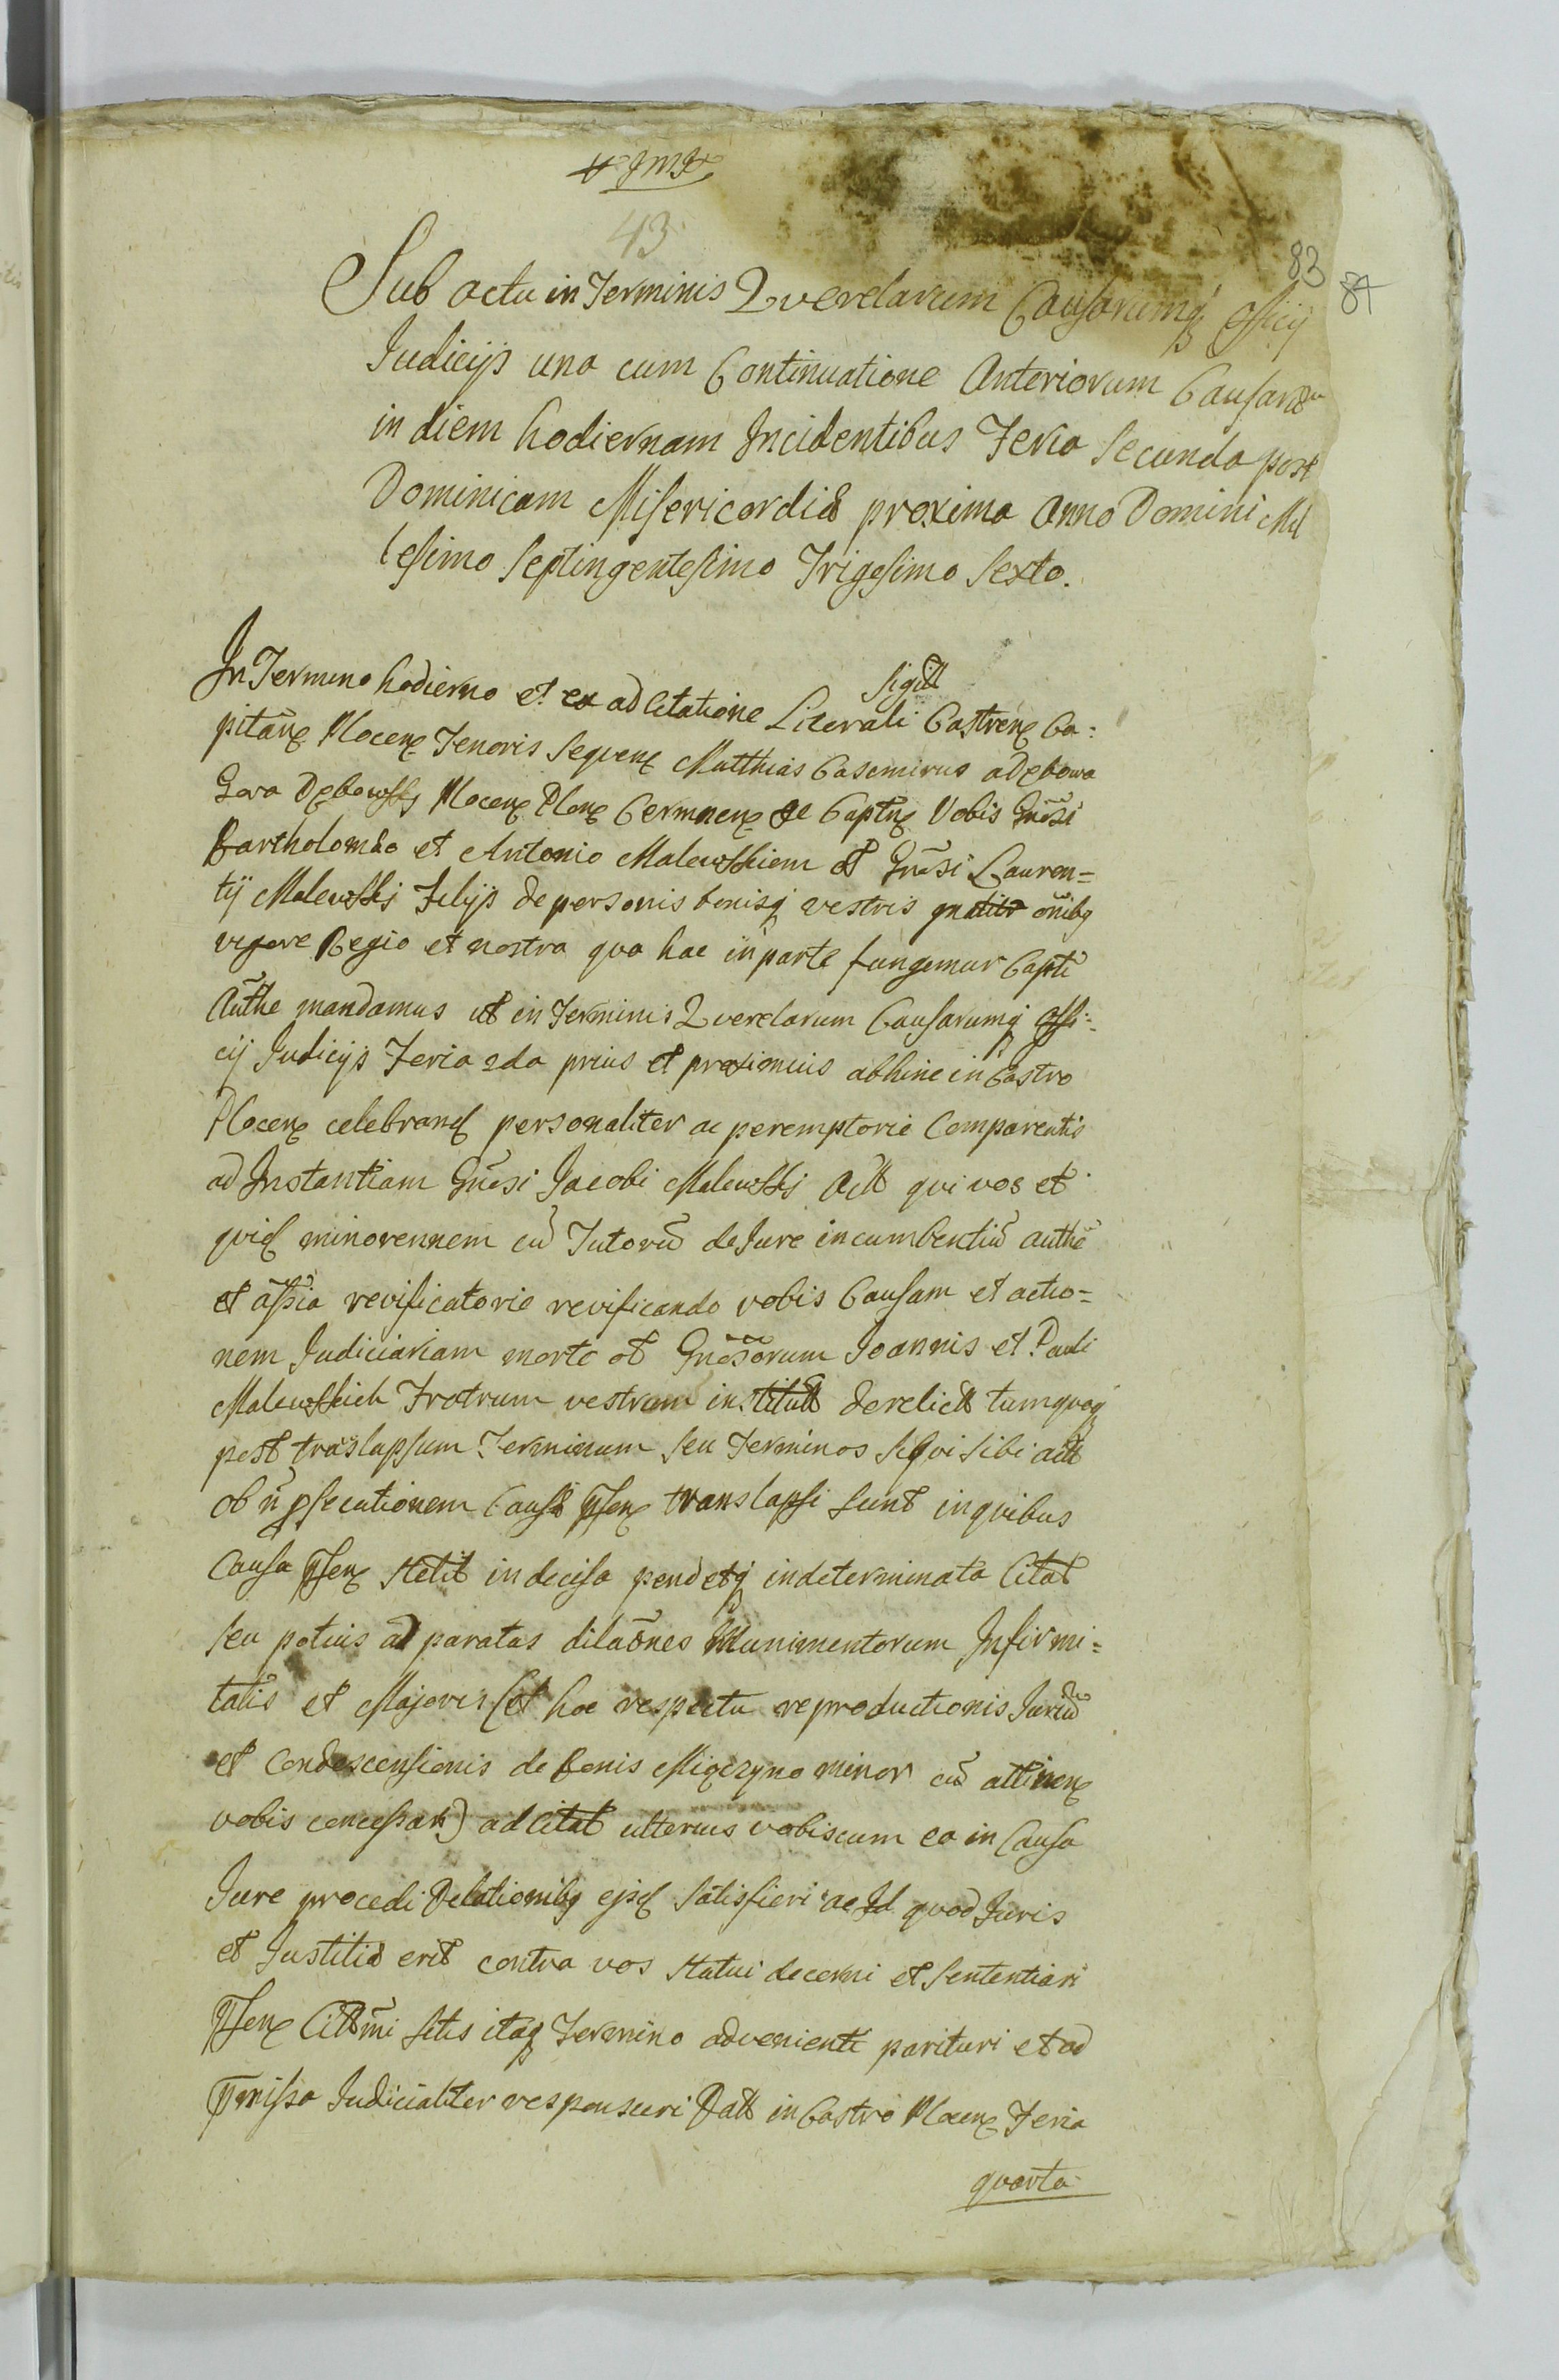 43
83
84
Sub actu in Terminis Qverelarum Causarumq Officij
Judicijs una cum Continuatione Anteriorum Causarum
in diem hodiernam Incidentibus Feria Secunda post
Dominicam Misericordiæ proxima Anno Domini Mil
lesimo Septingentesimo Trigesimo Sexto.
In Termino hodierno et ex adcitatione Literali Sigill Castren Ca:
pitan Plocen Tenoris Seqven Matthias Casemirus a Dębowa
Gora Dębowskj Plocen Plon Ce Captus Vobis Gnosi
Bartholomæo et Antonio Malewskiem ol Gnosi Lauren=
tij Malewskj Filijs de personis bonisq vestris gnaliter omibq
vigore Regio et nostra qva hac in parte fungemur Capti
Authe mandamus ut in Terminis Qverelarum Causarumq Offi:
cij Judicijs Feria 2da prius et proximius abhinc in Castro
Plocen celebrand personaliter ac peremptorie Comparentis
ad Instantiam Gnosi Jacobi Malewskj Actt qvi vos et
qvid minorennem cu Tutoru de Jure incumbentiu authe
et assia revificatorie revificando vobis Causam et actio=
nem Judiciariam morte ol Gnosorum Joannis et Pauli
Malewskich Fratrum vestrum institutt derelictt tumqvoq
post traslapsum Terminum seu Terminos Si qvi sibi actt
ob n psecutionem Causæ psen translapsi sunt in qvibus
Causa psen stetit indecisa pendetq indeterminata Citat
seu potius ad paratas dilaones Munimentorum Infirmi=
tatis et Majoris (et hoc respectu reproductionis Juriu
et Condescensionis de Bonis Migczyno minor cu attinen
vobis concessar) adcitat ulterius vobiscum ea in Causa
Jure procedi Relationibq ejsd Satisfieri ac Id qvod Juris
et Justitiæ erit contra vos statui decerni et Sententiari
psen Cittmi sitis itaq Termino adveniente parituri et ad
pmissa Judicialiter responsuri Datt in Castro Plocen Feria
qvarta